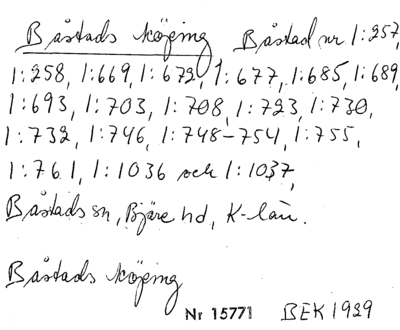 Båstads köping Båstad nr 1:257,
1:258, 1:669, 1:672, 1:677, 1:685, 1:689,
1:693, 1:703, 1:708, 1:723, 1:730,
1:732, 1:746, 1:748-754, 1:755,
1:761, 1:1036 och 1:1037,
Båstads sn, Bjäre hd, K-län.
Båstads köping
Nr 15771 BEK 1929